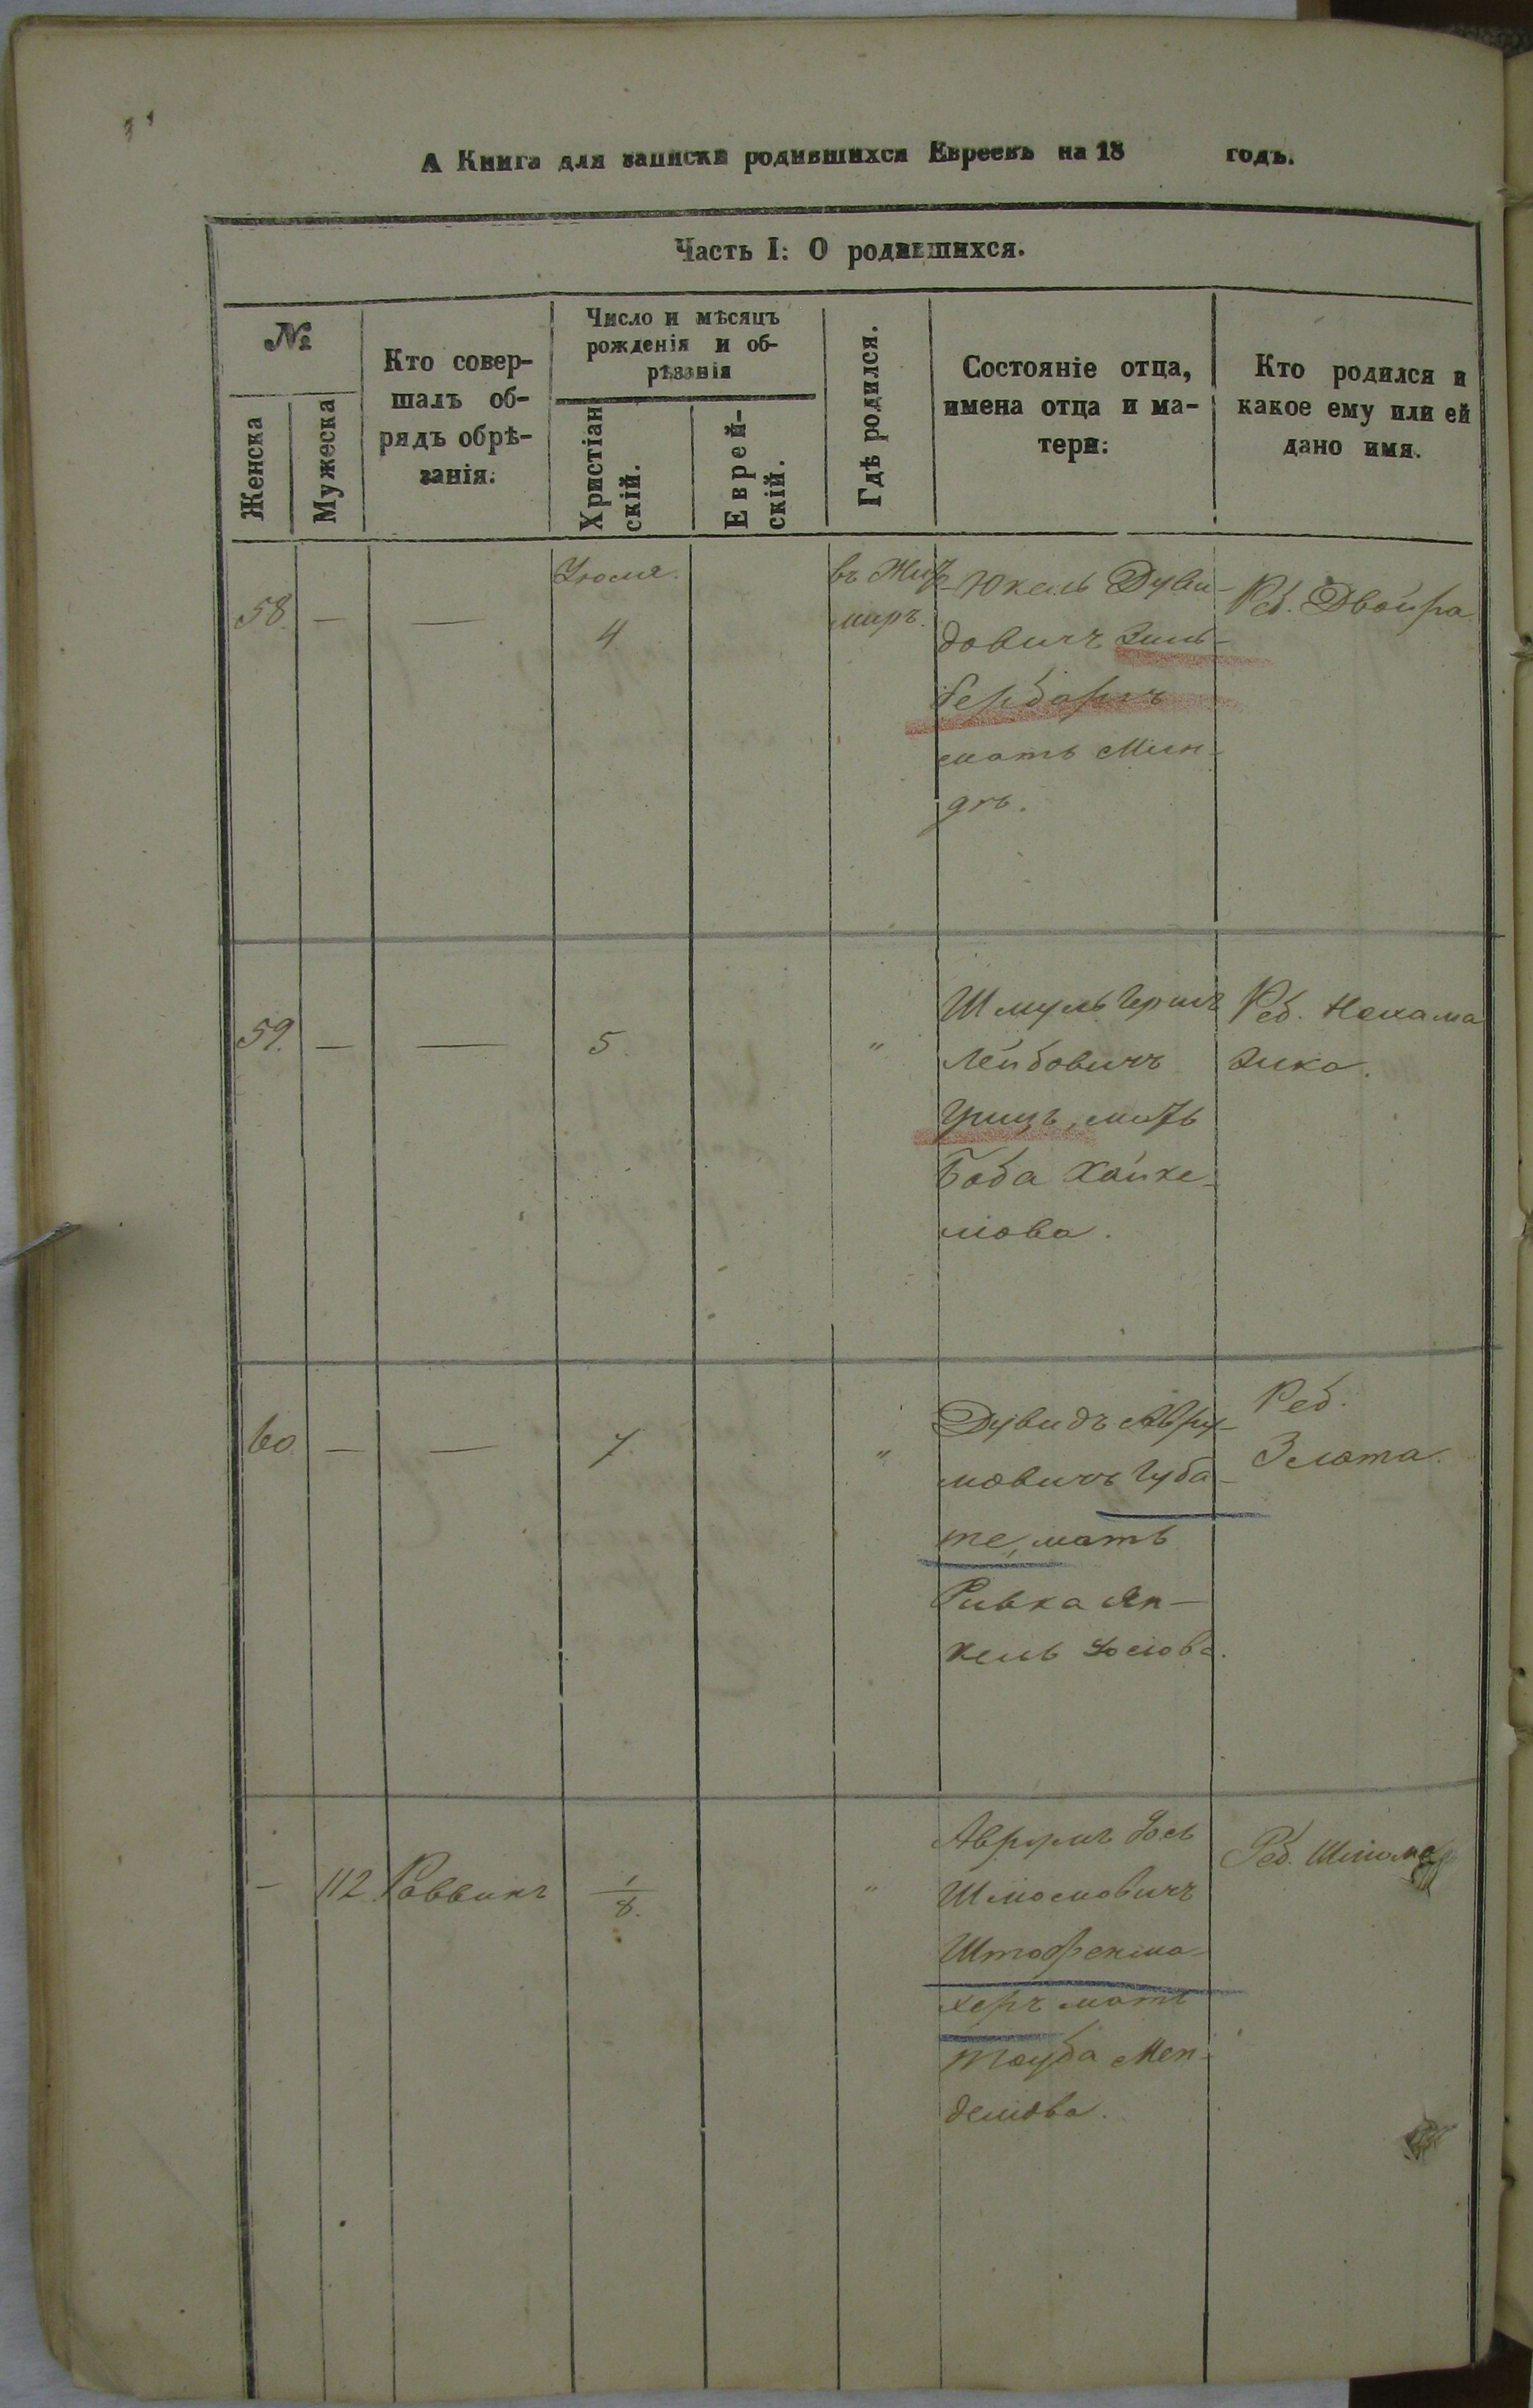 А Книга для записки родившихся Евреевъ на 18 годъ.
Часть I: О родившихся.
№
Женска
Мужеска
Кто совер-
шалъ об-
рядъ обрѣ-
занія.
Число и мѣсяцъ
рожденія и об-
рѣзанія
Христіан
скій.
Еврей-
скій.
Гдѣ родился.
Состояніе отца,
имена отца и ма-
тери:
Кто родился и
какое ему или ей
дано имя.
58. — —
Іюля
4
въ Жит
миръ.
Юкель Дуви-
довичъ Зиль-
бербаргъ
мать Мин-
дль.
Реб. Двойра
59. — — 5. "
Шмуль Герцъ
Лейбовичъ
Урицъ, мать
Боба Хайке-
лова.
Реб. Нехама
Зика.
60. — — 7. "
Дувидъ Авру-
мовичъ Губа-
те, мать
Ривка Ян-
кель Іослова.
Реб.
Злота.
— 112 Раввинъ 1/8. "
Аврумъ Іось
Шліомовичъ
Штофенма-
херъ мать
Тауба Мен-
делюва.
Реб. Шліома